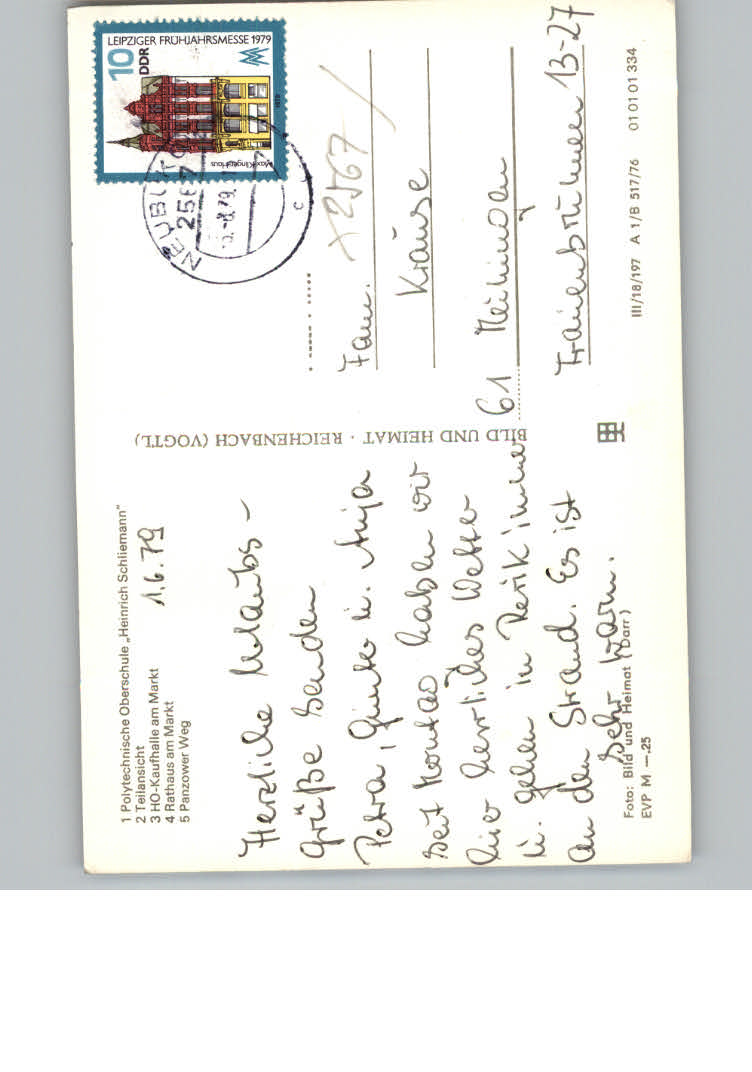 1 Polytechnische Oberschule „Heinrich Schliemann"
2 Teilansicht
3 HO-Kaufhalle am Markt
4 Rathaus am Markt
5 Panzower Weg
1.6.79
Herzliche Urlaubs-
grüße senden
Petra, Günter u. Anja
Seit Montag haben wir
hier herrliches Wetter
u. gehen in Rerik immer
an den Strand. Es ist
sehr warm.
Foto: Bild und Heimat (Darr)
EVP M —.25
BILD UND HEIMAT · REICHENBACH (VOGTL)
LEIPZIGER FRÜHJAHRSMESSE 1979
10
DDR
1979
2567
-8.79.
c
x2567/
Fam.
Krause
61 Meiningen
Frauenbrühlen 13-27
III/18/197 A 1/B 517/76 01 01 01 334